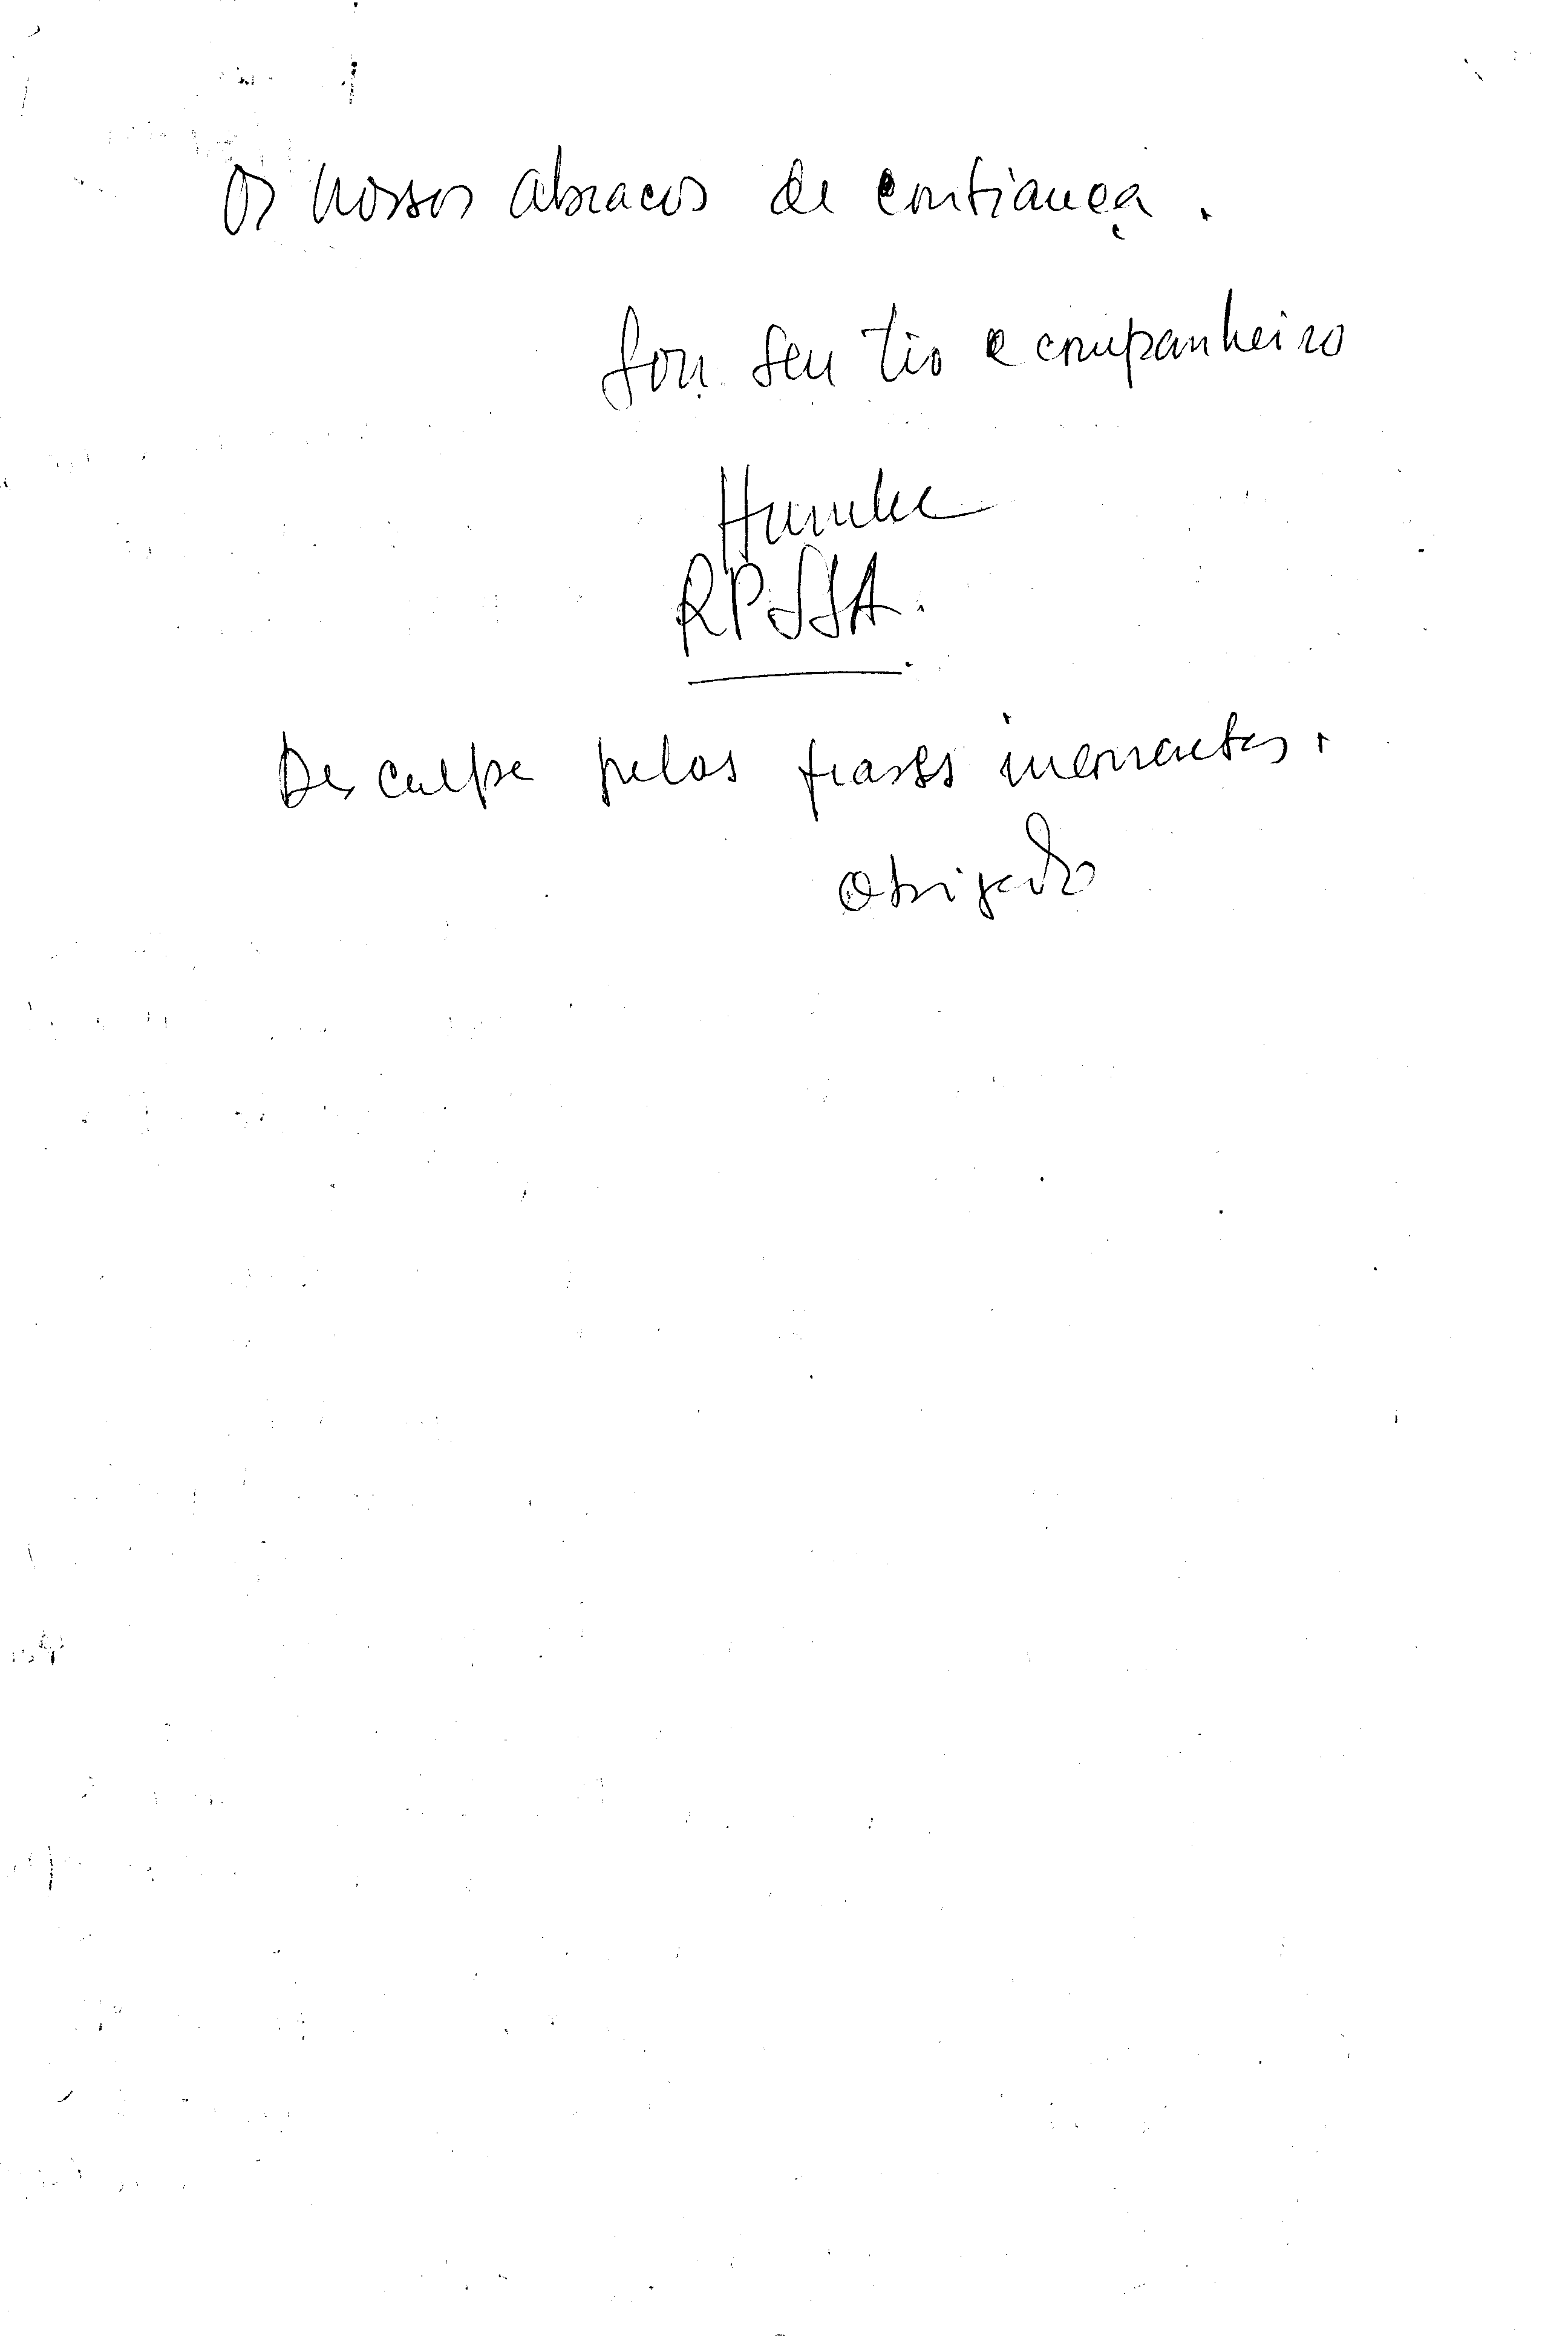 Os nossos abracos de confiança.
Sou seu tio e companheiro
Hunuke
RPSSA.
Desculpe pelas frases incorrectas.
Obrigado